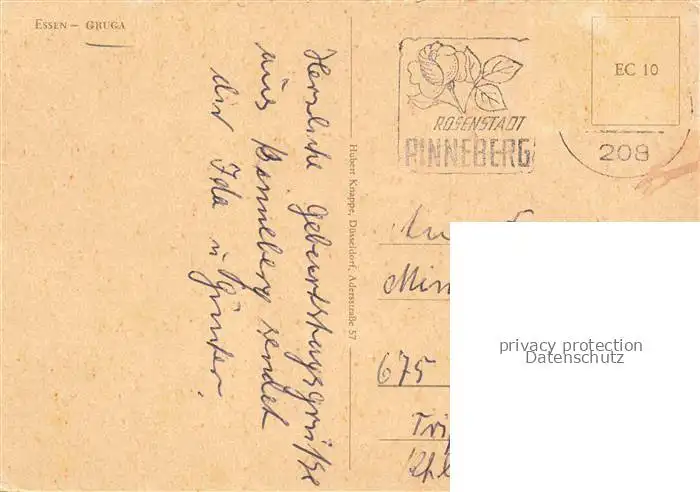 ESSEN – GRUGA
Herzliche Geburtstagsgrüße
aus Bonneberg sendet
dir Ida u Günter.
Hubert Knappe, Düsseldorf, Adersstraße 57
ROSENSTADT
PINNEBERG
EC 10
208
675
privacy protection
Datenschutz